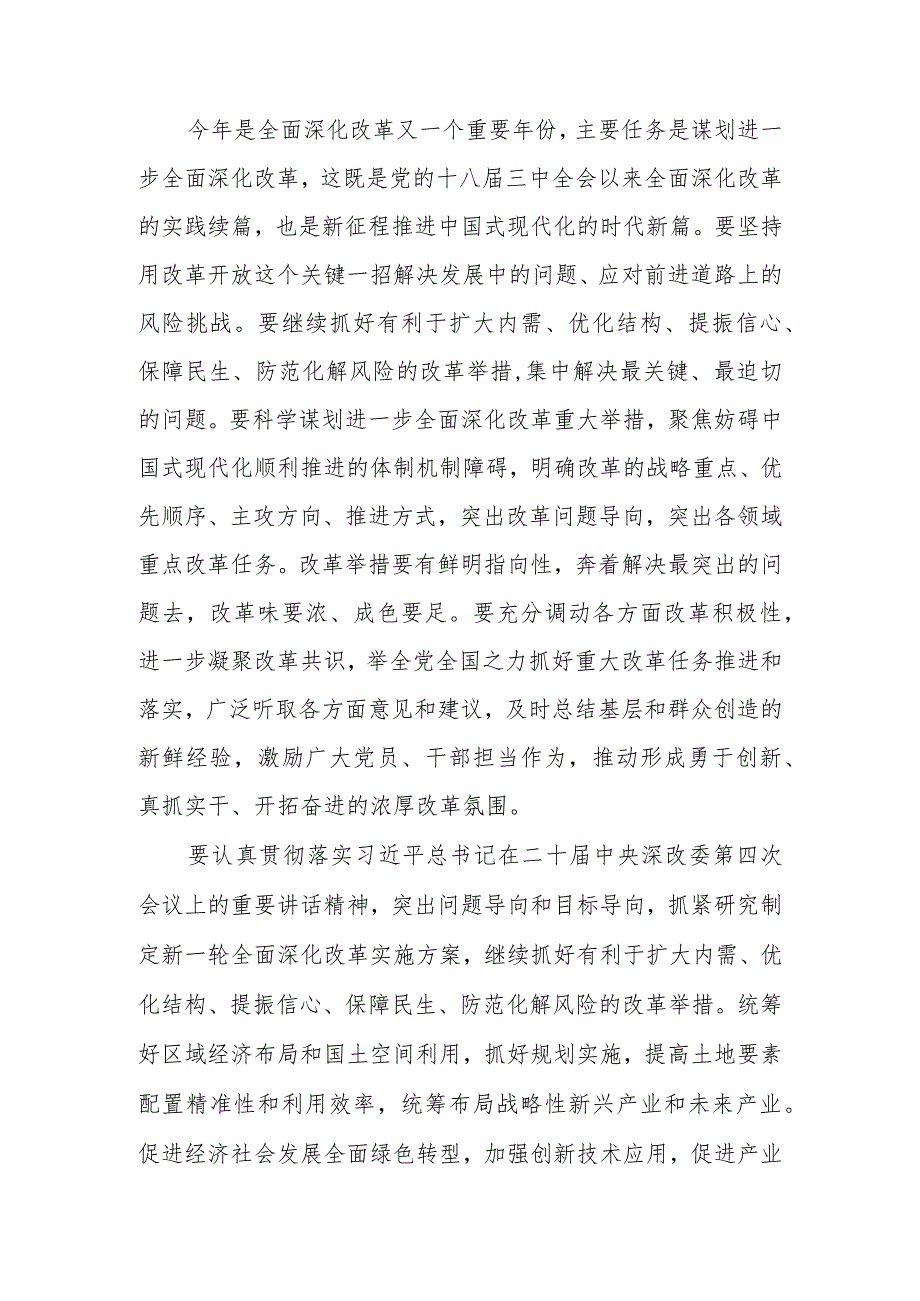 今年是全面深化改革又一个重要年份，主要任务是谋划进一
步全面深化改革，这既是党的十八届三中全会以来全面深化改革
的实践续篇，也是新征程推进中国式现代化的时代新篇。要坚持
用改革开放这个关键一招解决发展中的问题、应对前进道路上的
风险挑战。要继续抓好有利于扩大内需、优化结构、提振信心、
保障民生、防范化解风险的改革举措,集中解决最关键、最迫切
的问题。要科学谋划进一步全面深化改革重大举措，聚焦妨碍中
国式现代化顺利推进的体制机制障碍，明确改革的战略重点、优
先顺序、主攻方向、推进方式，突出改革问题导向，突出各领域
重点改革任务。改革举措要有鲜明指向性，奔着解决最突出的问
题去，改革味要浓、成色要足。要充分调动各方面改革积极性，
进一步凝聚改革共识，举全党全国之力抓好重大改革任务推进和
落实，广泛听取各方面意见和建议，及时总结基层和群众创造的
新鲜经验，激励广大党员、干部担当作为，推动形成勇于创新、
真抓实干、开拓奋进的浓厚改革氛围。
要认真贯彻落实习近平总书记在二十届中央深改委第四次
会议上的重要讲话精神，突出问题导向和目标导向，抓紧研究制
定新一轮全面深化改革实施方案，继续抓好有利于扩大内需、优
化结构、提振信心、保障民生、防范化解风险的改革举措。统筹
好区域经济布局和国土空间利用，抓好规划实施，提高土地要素
配置精准性和利用效率，统筹布局战略性新兴产业和未来产业。
促进经济社会发展全面绿色转型，加强创新技术应用，促进产业